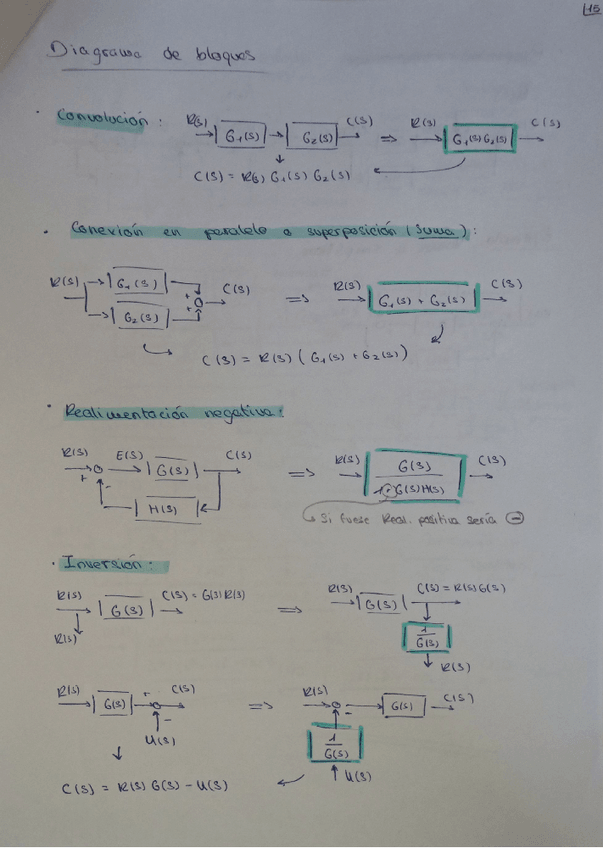 15
Diagrama de bloques
· Convolución : R(s) G₁(s) G₂(s) C(s) => R(s) G₁(s)G₂(s) C(s)
C(s) = R(s) G₁(s) G₂(s)
· Conexión en paralelo o superposición (Suma) :
R(s) G₁(s) + C(s) => R(s) G₁(s) + G₂(s) C(s)
G₂(s) +
C(s) = R(s) ( G₁(s) + G₂(s) )
· Realimentación negativa :
R(s) + E(s) G(s) C(s) => R(s) G(s) C(s)
- H(s) 1+G(s)H(s)
Si fuese Real. positiva sería -
· Inversión :
R(s) G(s) C(s) = G(s) R(s) => R(s) G(s) C(s) = R(s) G(s)
R(s) 1
G(s)
R(s)
R(s) G(s) + C(s) => R(s) - G(s) C(s)
- 1
U(s) G(s)
U(s)
C(s) = R(s) G(s) - U(s)